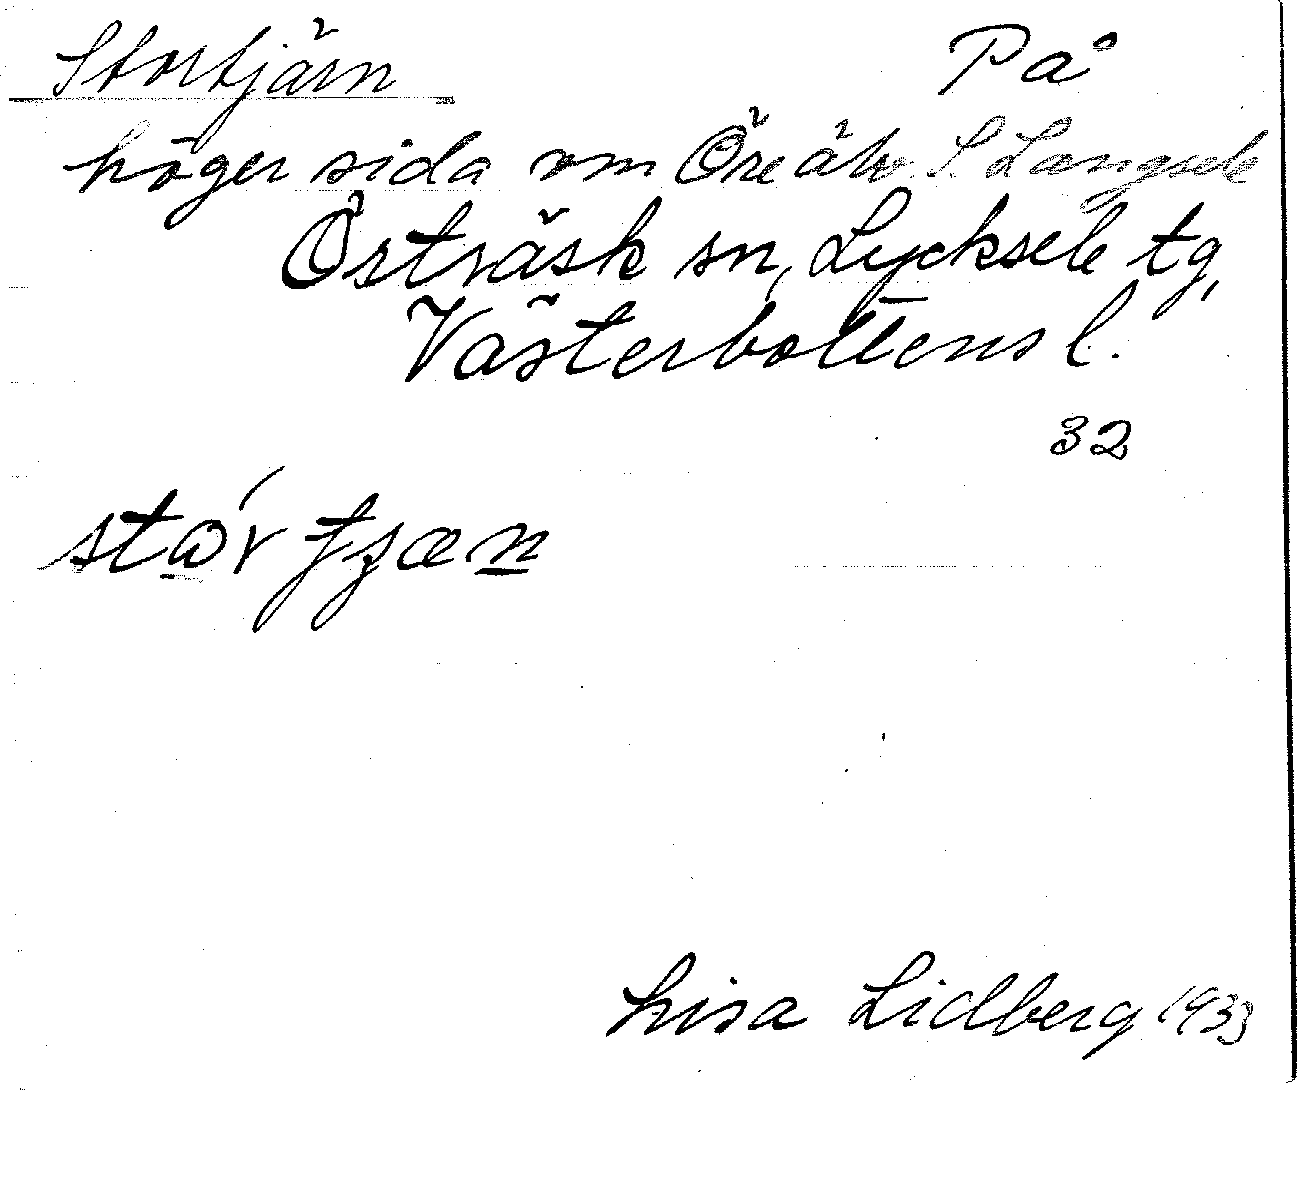 Stortjärn På
höger sida om Öre älv S. Långsele
Örträsk sn, Lycksele tg,
Västerbottens l.
32
stór tjæn
Lisa Lidberg 1933